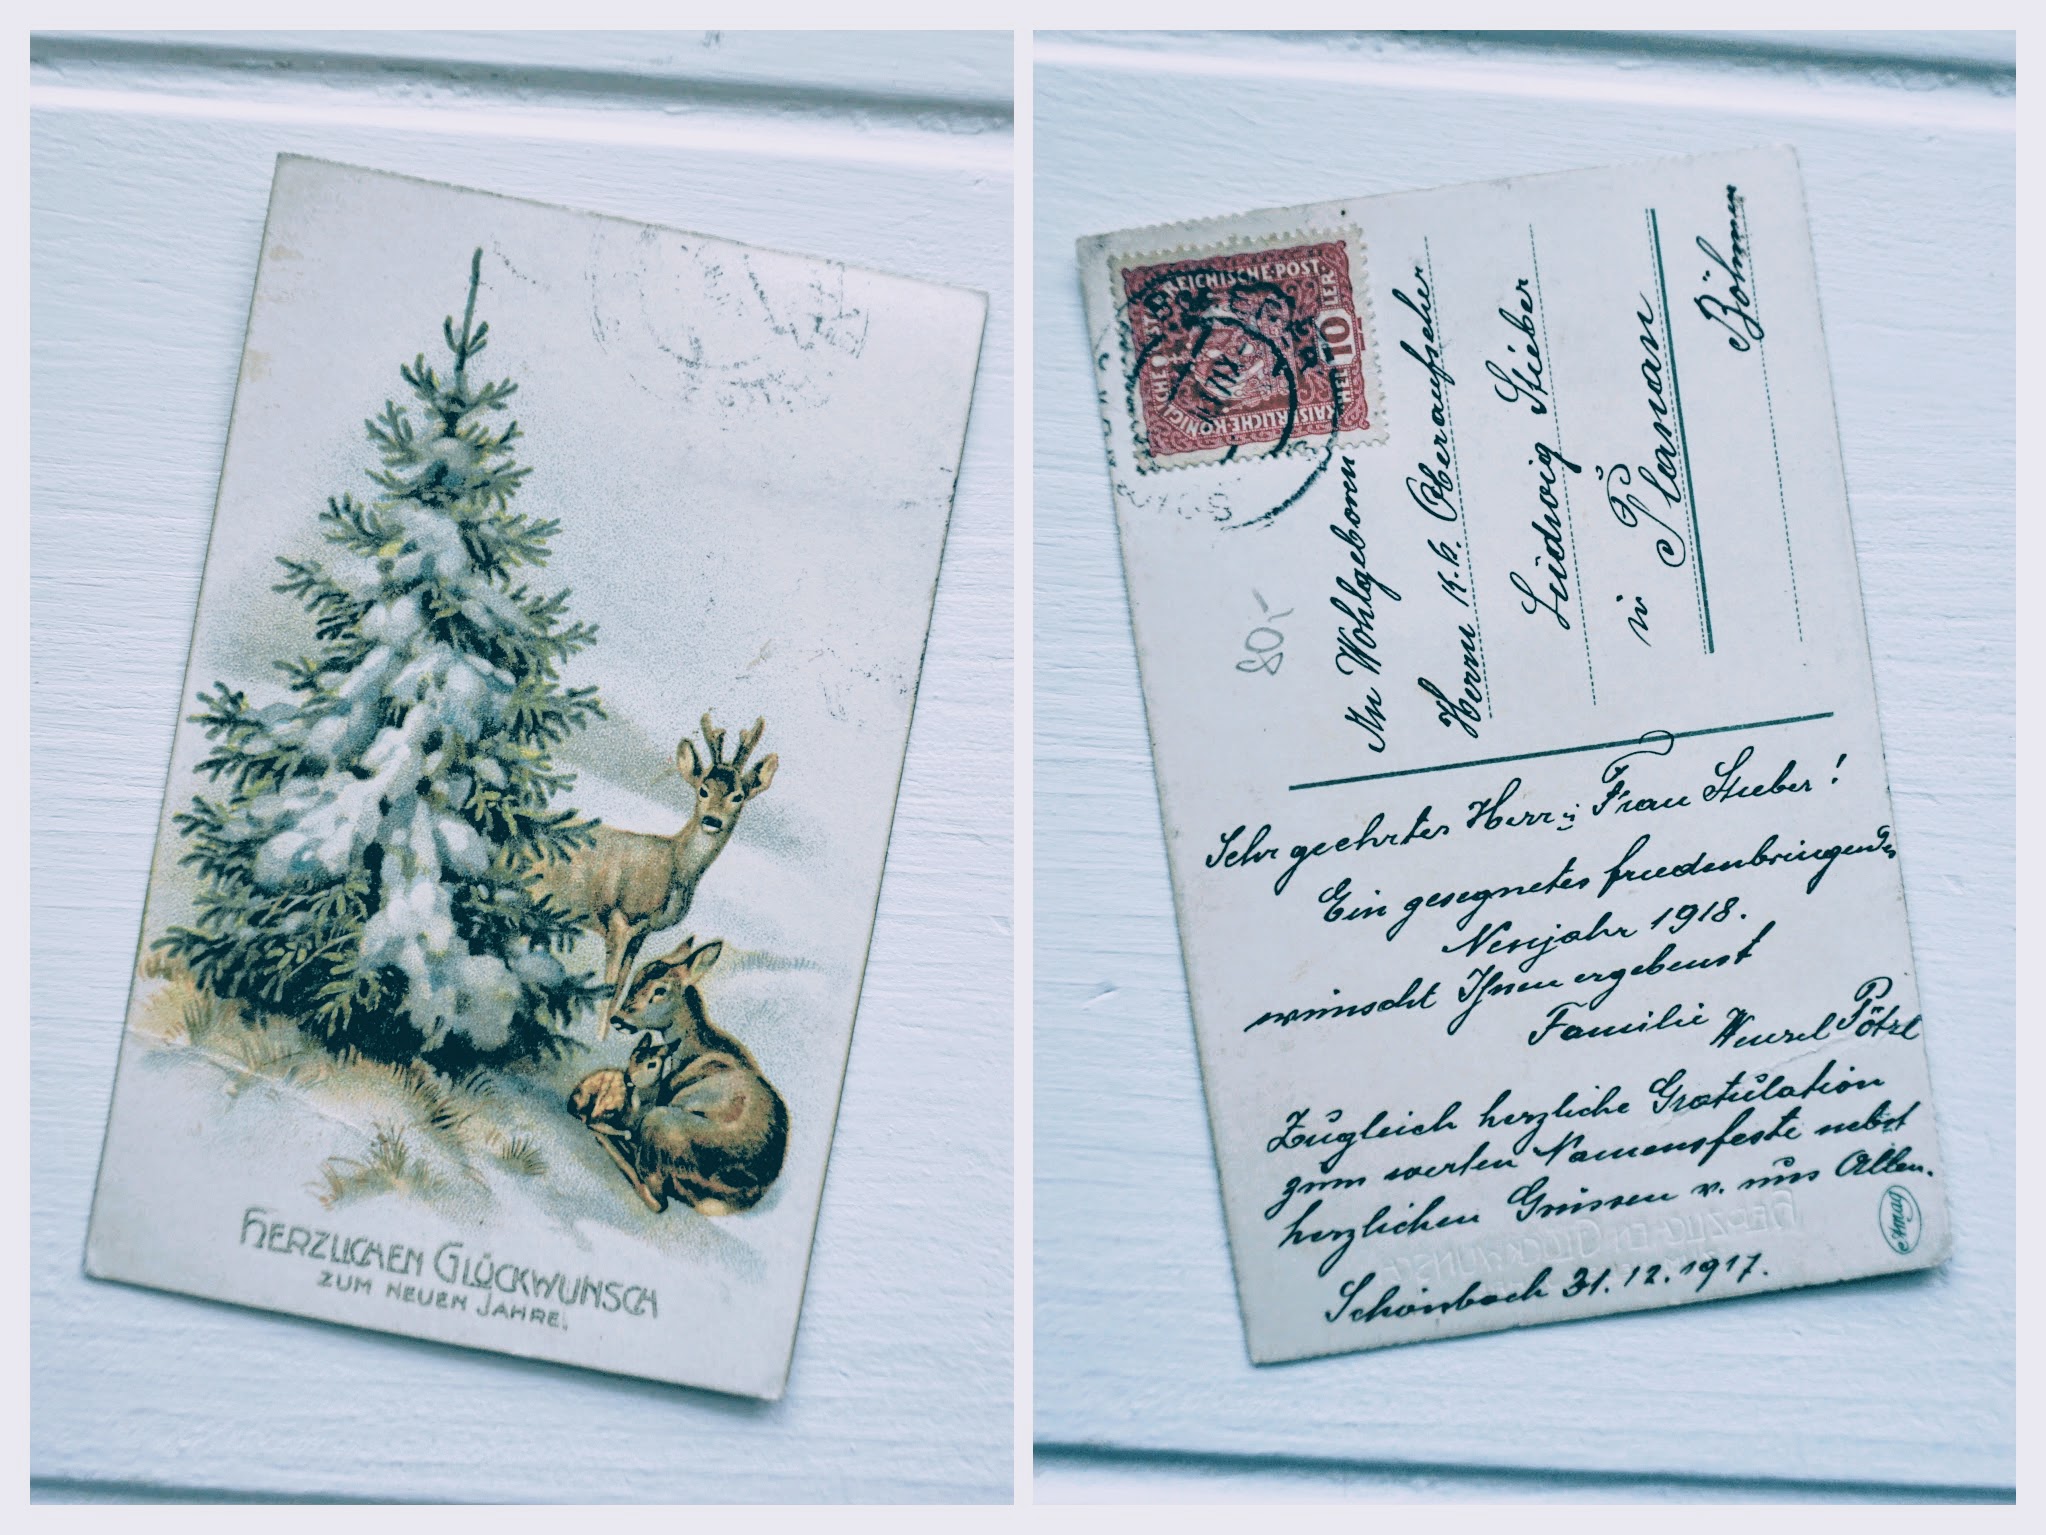 HERZLICHEN GLÜCKWUNSCH
ZUM NEUEN JAHRE.
KAISERLICHE KÖNIGLICHE ÖSTERREICHISCHE POST
10 HELLER
80,-
An Wohlgeboren
Herrn k. k. Oberaufseher
Ludwig Stieber
in Planan
Böhmen
Sehr geehrter Herr u Frau Stieber!
Ein gesegnetes friedenbringendes
Neujahr 1918.
wünscht Ihnen ergebenst
Familie Wenzel Pötzl
Zugleich herzliche Gratulation
zum werten Namensfeste nebst
herzlichen Grüssen v. uns Allen.
Schönbach 31.12.1917.
Amag